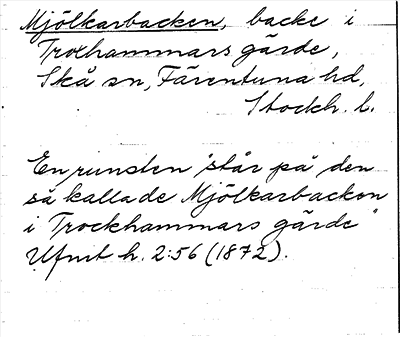 Mjölkarbacken, backe i
Trolhammars gärde,
Skå sn, Färentuna hd,
Stockh. l.
En runsten "står på den
så kallade Mjölkarbacken
i Trockhammars gärde"
Ufmt h. 2:56 (1872).